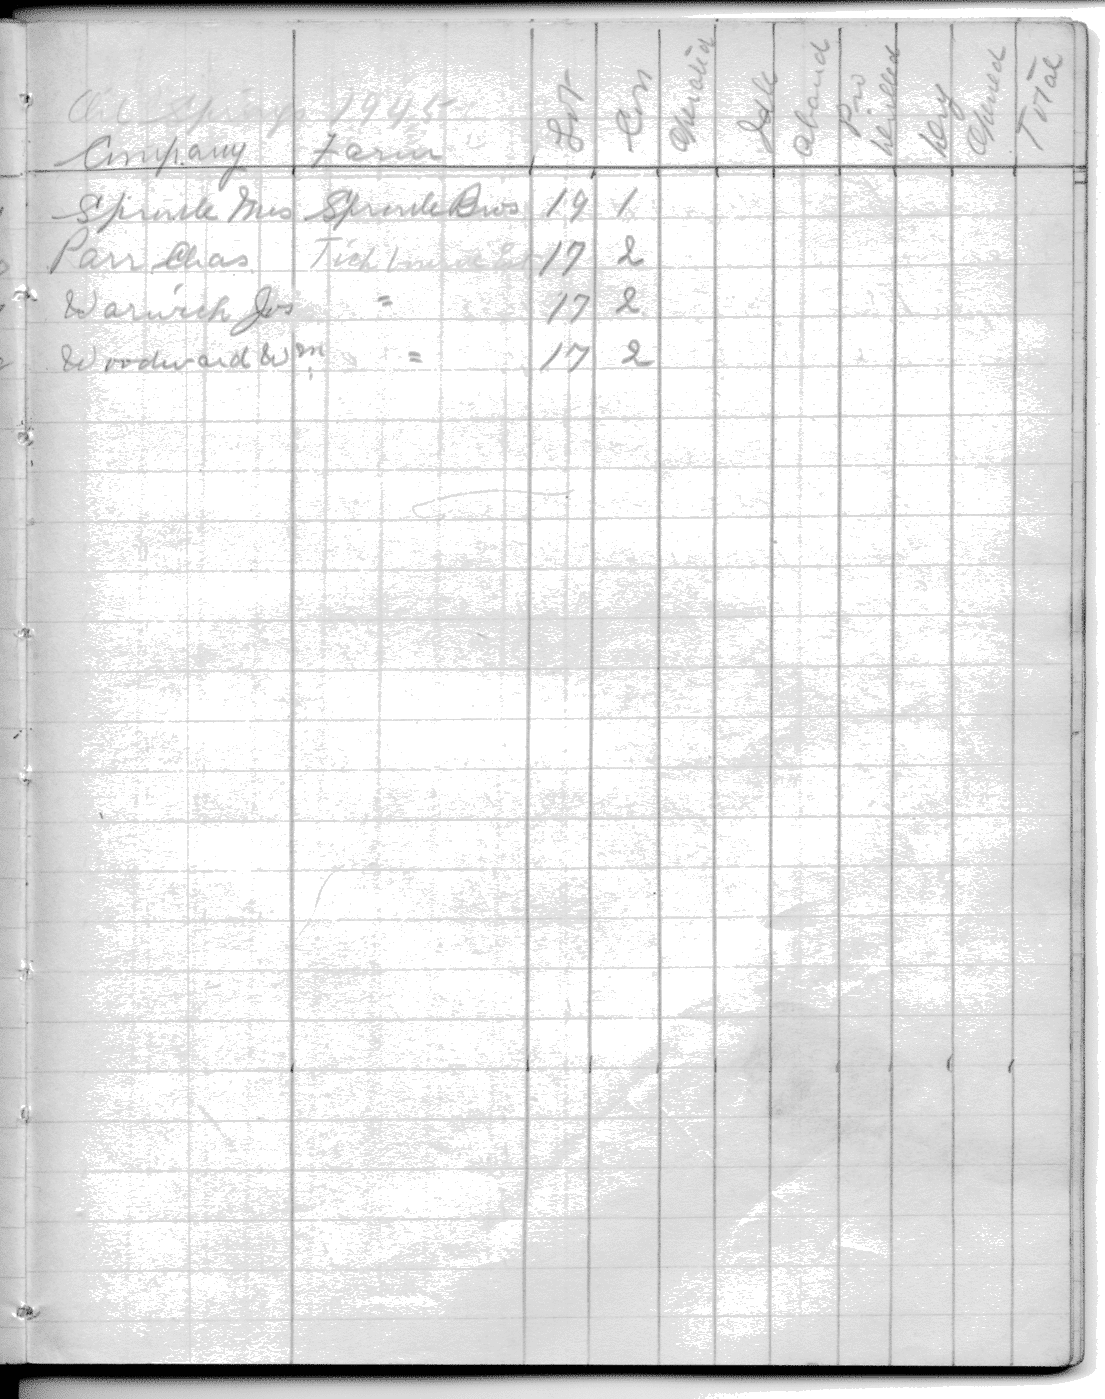 Oil Springs 1945
Company Farm Lot Con Operated Idle Aband Pro Drilled Dry Total
Sproule Sproule Bros 19 1
Parr Chas. 17 2
Warwick Jos " 17 2
Woodward Wm " 17 2